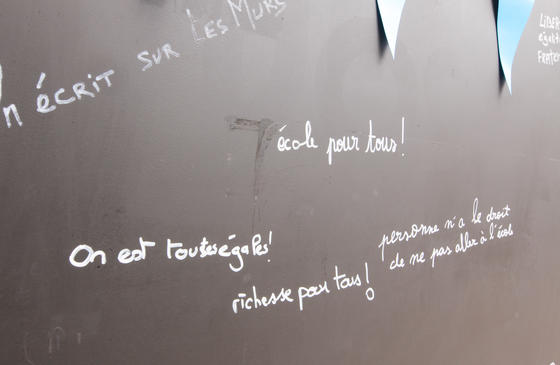 n écrit sur Les Murs
LIBER
égalit
FRATER
école pour tous!
personne n'a le droit
de ne pas aller à l'écol
On est toutes égales!
richesse pour tous!